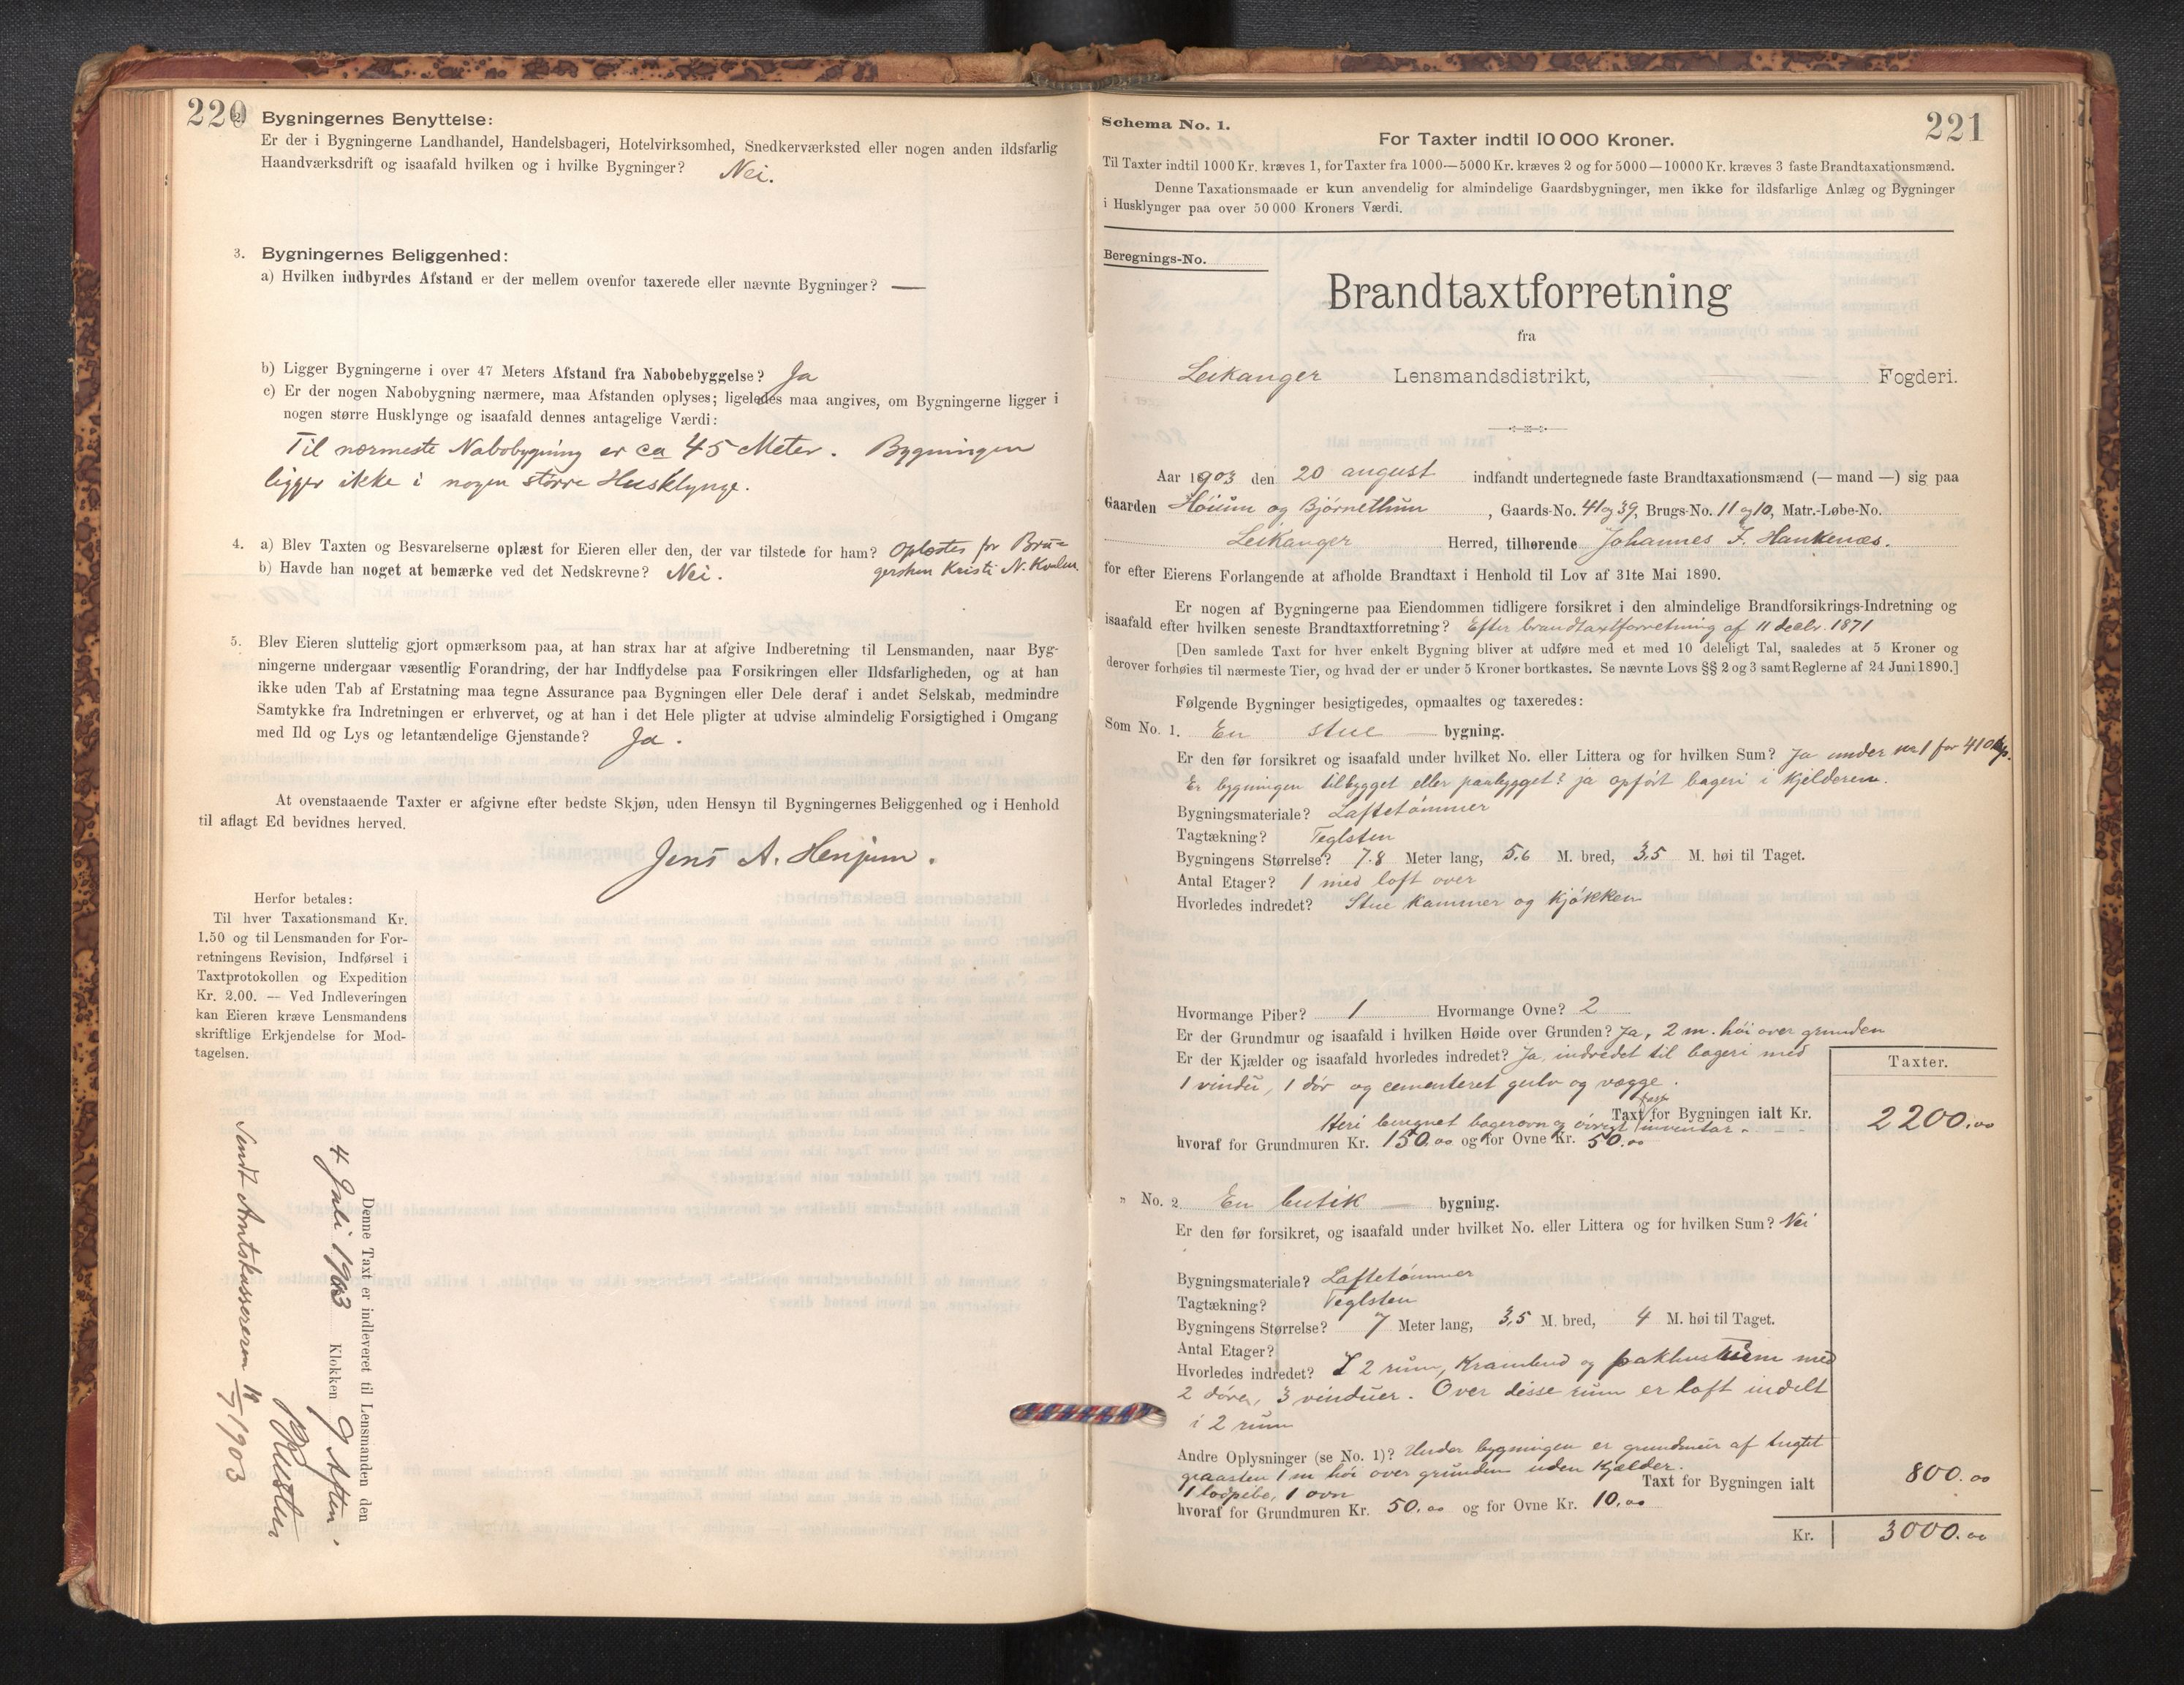 220
2. Bygningernes Benyttelse:
Er der i Bygningerne Landhandel, Handelsbageri, Hotelvirksomhed, Snedkerværksted eller nogen anden ildsfarlig
Haandværksdrift og isaafald hvilken og i hvilke Bygninger? Nei.
3. Bygningernes Beliggenhed:
a) Hvilken indbyrdes Afstand er der mellem ovenfor taxerede eller nævnte Bygninger? —
b) Ligger Bygningerne i over 47 Meters Afstand fra Nabobebyggelse? Ja
c) Er der nogen Nabobygning nærmere, maa Afstanden oplyses; ligeledes maa angives, om Bygningerne ligger i
nogen større Husklynge og isaafald dennes antagelige Værdi:
Til nærmeste Nabobygning er ca 45 Meter. Bygningen
ligger ikke i nogen større Husklynge.
4. a) Blev Taxten og Besvarelserne oplæst for Eieren eller den, der var tilstede for ham? Oplæstes for Bru-
b) Havde han noget at bemærke ved det Nedskrevne? Nei. gersken Kristi N. Kvalen
5. Blev Eieren sluttelig gjort opmærksom paa, at han strax har at afgive Indberetning til Lensmanden, naar Byg-
ningerne undergaar væsentlig Forandring, der har Indflydelse paa Forsikringen eller Ildsfarligheden, og at han
ikke uden Tab af Erstatning maa tegne Assurance paa Bygningen eller Dele deraf i andet Selskab, medmindre
Samtykke fra Indretningen er erhvervet, og at han i det Hele pligter at udvise almindelig Forsigtighed i Omgang
med Ild og Lys og letantændelige Gjenstande? Ja.
At ovenstaaende Taxter er afgivne efter bedste Skjøn, uden Hensyn til Bygningernes Beliggenhed og i Henhold
til aflagt Ed bevidnes herved.
Jens A. Henjum.
Herfor betales:
Til hver Taxationsmand Kr.
1.50 og til Lensmanden for For-
retningens Revision, Indførsel i
Taxtprotokollen og Expedition
Kr. 2.00. — Ved Indleveringen
kan Eieren kræve Lensmandens
skriftlige Erkjendelse for Mod-
tagelsen.
Denne Taxt er indleveret til Lensmanden den
4 Juli 1903 Klokken 9 Aften.
Sendt Amtskassereren 1903
221
Schema No. 1.
For Taxter indtil 10 000 Kroner.
Til Taxter indtil 1000 Kr. kræves 1, for Taxter fra 1000—5000 Kr. kræves 2 og for 5000—10000 Kr. kræves 3 faste Brandtaxationsmænd.
Denne Taxationsmaade er kun anvendelig for almindelige Gaardsbygninger, men ikke for ildsfarlige Anlæg og Bygninger
i Husklynger paa over 50 000 Kroners Værdi.
Beregnings-No.
Brandtaxtforretning
fra
Leikanger Lensmandsdistrikt, Fogderi.
Aar 1903 den 20 august indfandt undertegnede faste Brandtaxationsmænd (— mand —) sig paa
Gaarden Høium og Bjørnethun, Gaards-No. 41 og 39, Brugs-No. 11 og 10, Matr.-Løbe-No.
Leikanger Herred, tilhørende Johannes J. Hankenæs.
for efter Eierens Forlangende at afholde Brandtaxt i Henhold til Lov af 31te Mai 1890.
Er nogen af Bygningerne paa Eiendommen tidligere forsikret i den almindelige Brandforsikrings-Indretning og
isaafald efter hvilken seneste Brandtaxtforretning? Efter brandtaxtforretning af 11 decbr. 1871
[Den samlede Taxt for hver enkelt Bygning bliver at udføre med et med 10 deleligt Tal, saaledes at 5 Kroner og
derover forhøies til nærmeste Tier, og hvad der er under 5 Kroner bortkastes. Se nævnte Lovs §§ 2 og 3 samt Reglerne af 24 Juni 1890.]
Følgende Bygninger besigtigedes, opmaaltes og taxeredes:
Som No. 1. En stue — bygning.
Er den før forsikret og isaafald under hvilket No. eller Littera og for hvilken Sum? Ja under nr 1 for 410
Er bygningen tilbygget eller paabygget? ja opført bageri i kjelderen.
Bygningsmateriale? Laftetømmer
Tagtækning? Teglsten
Bygningens Størrelse? 7.8 Meter lang, 5,6 M. bred, 3,5 M. høi til Taget.
Antal Etager? 1 med loft over
Hvorledes indredet? Stue kammer og kjøkken
Hvormange Piber? 1 Hvormange Ovne? 2
Er der Grundmur og isaafald i hvilken Høide over Grunden? Ja, 2 m. høi over grunden
Er der Kjælder og isaafald hvorledes indredet? Ja, indredet til bageri med
1 vindu, 1 dør og cementeret gulv og vægge.
Taxter.
Heri beregnet bagerovn og øvrigt fast inventar. Taxt for Bygningen ialt Kr. 2200.00
hvoraf for Grundmuren Kr. 150.00 og for Ovne Kr. 50.00
" No. 2. En butik — bygning.
Er den før forsikret, og isaafald under hvilket No. eller Littera og for hvilken Sum? Nei
Bygningsmateriale? Laftetømmer
Tagtækning? Teglsten
Bygningens Størrelse? 7 Meter lang, 3,5 M. bred, 4 M. høi til Taget.
Antal Etager?
Hvorledes indredet? I 2 rum, Krambud og pakhusrum med
2 døre, 3 vinduer. Over disse rum er loft indelt
i 2 rum
Andre Oplysninger (se No. 1)? Under bygningen er grundmur af hugtet
graasten 1 m høi over grunden uden kjælder.
1 lodpibe, 1 ovn Taxt for Bygningen ialt 800.00
hvoraf for Grundmuren Kr. 50.00 og for Ovne Kr. 10.00
Kr. 3000.00